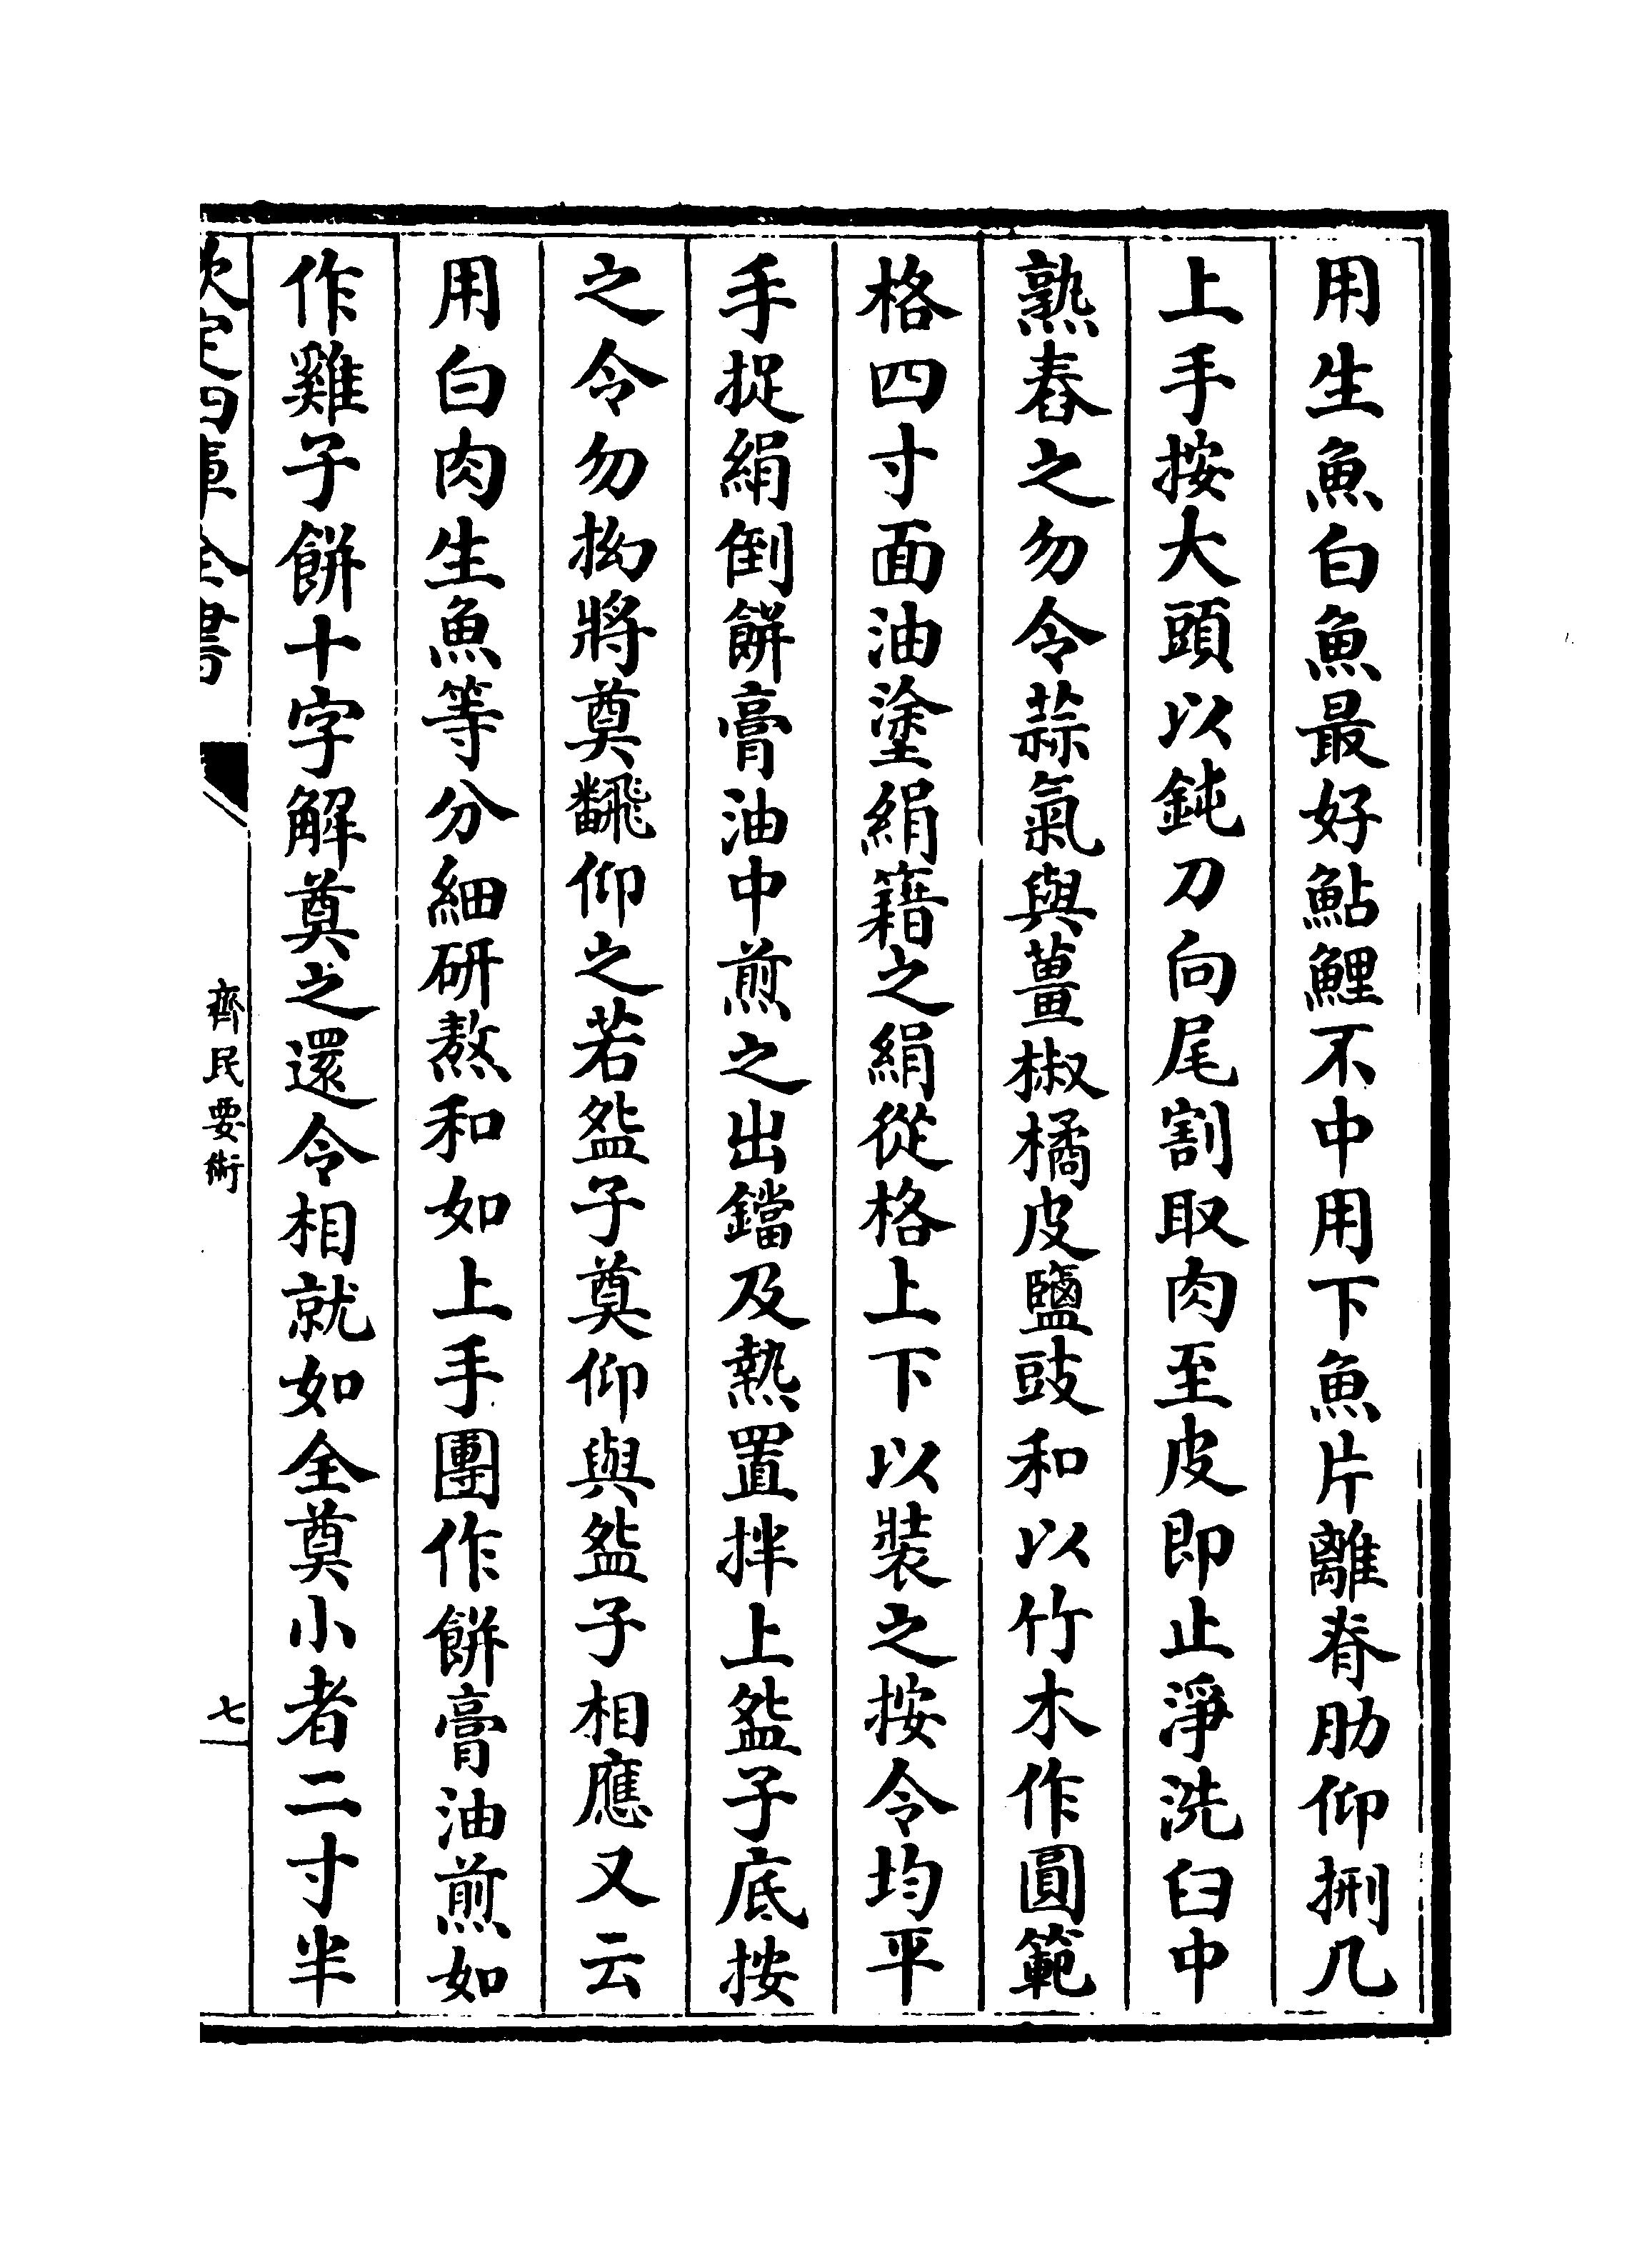 用生魚白魚最好鮎鯉不中用下魚片離脊肋仰㭠几
上手按大頭以鈍刀向尾割取肉至皮即止淨洗臼中
熟舂之勿令蒜氣與薑椒橘皮鹽豉和以竹木作圓範
格四寸面油塗絹籍之絹從格上下以裝之按令均平
手捉絹倒餅膏油中煎之出鐺及熱置拌上盌子底按
之令勿拗將奠飜仰之若盌子奠仰與盌子相應又云
用白肉生魚等分細研熬和如上手團作餅膏油煎如
作雞子餅十字解奠之還令相就如全奠小者二寸半
欽定四庫全書
齊民要術
七